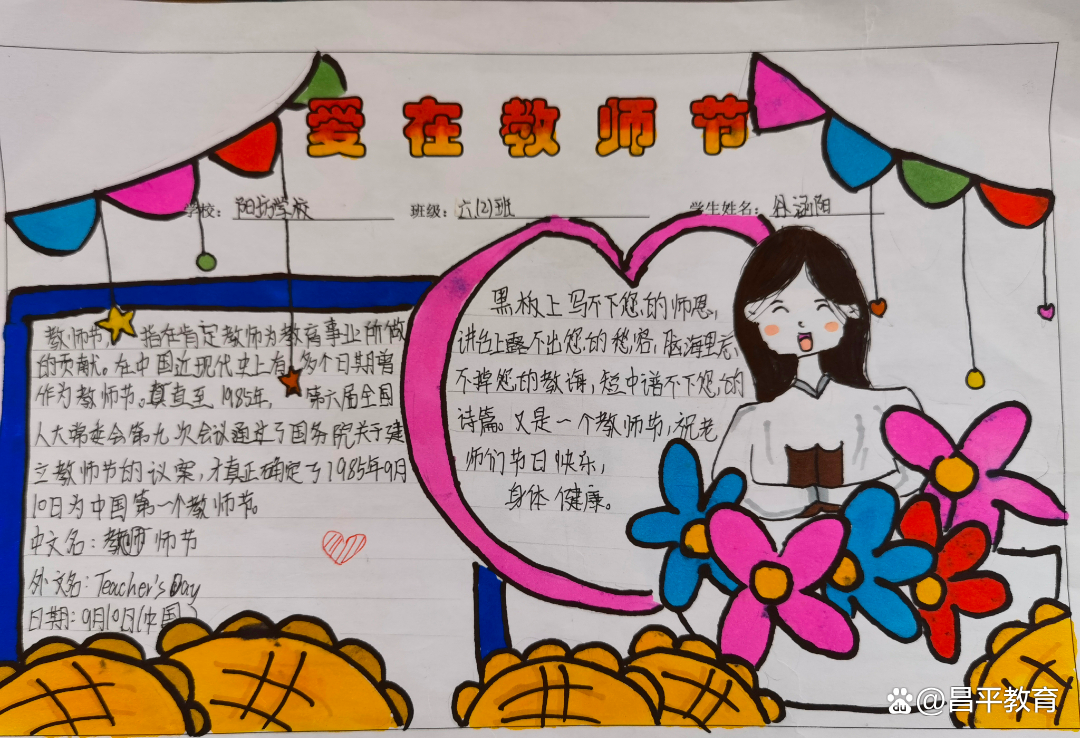 爱在教师节
学校：阳坊学校 班级：六(2)班 学生姓名：涵阳
教师节，指在肯定教师为教育事业所做
的贡献。在中国近现代史上有多个日期曾
作为教师节。直至1985年，第六届全国
人大常委会第九次会议通过了国务院关于建
立教师节的议案，才真正确定了1985年9月
10日为中国第一个教师节。
中文名：教师节
外文名：Teacher's Day
日期：9月10日(中国)
黑板上写不下您的师恩，
讲台上露不出您的愁容，脑海里忘
不掉您的教诲，短中谱不下您的
诗篇。又是一个教师节，祝老
师们节日快乐，
身体健康。
@昌平教育